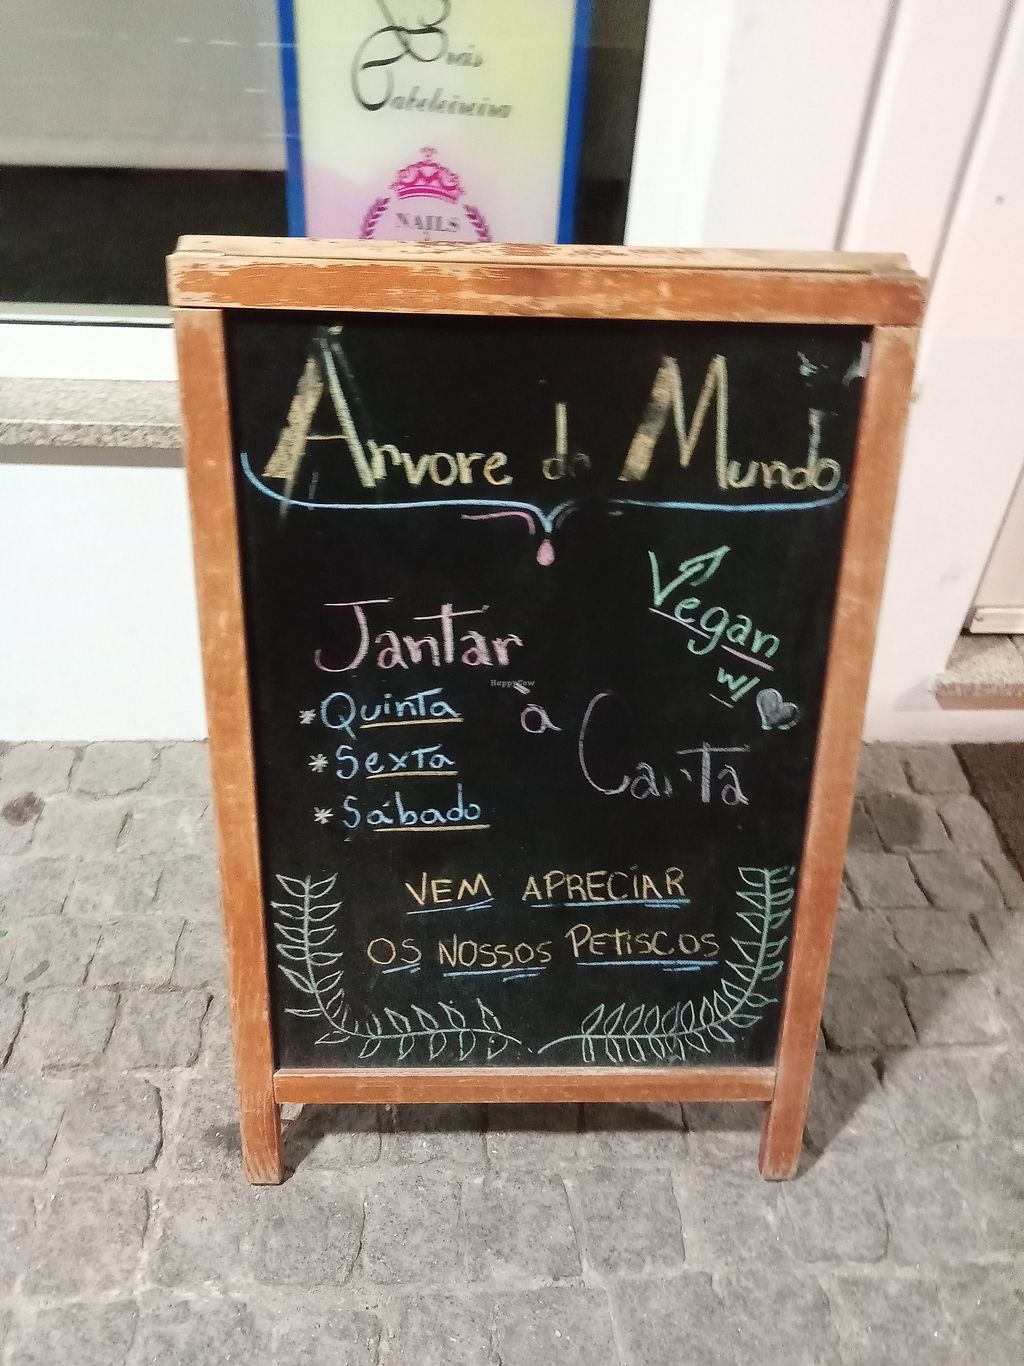 Brás
Cabeleireira
NAILS
Arvore do Mundo
Vegan
w/
Jantar
*Quinta
*Sexta
*Sábado
à
Carta
VEM APRECIAR
OS NOSSOS PETISCOS
HappyCow